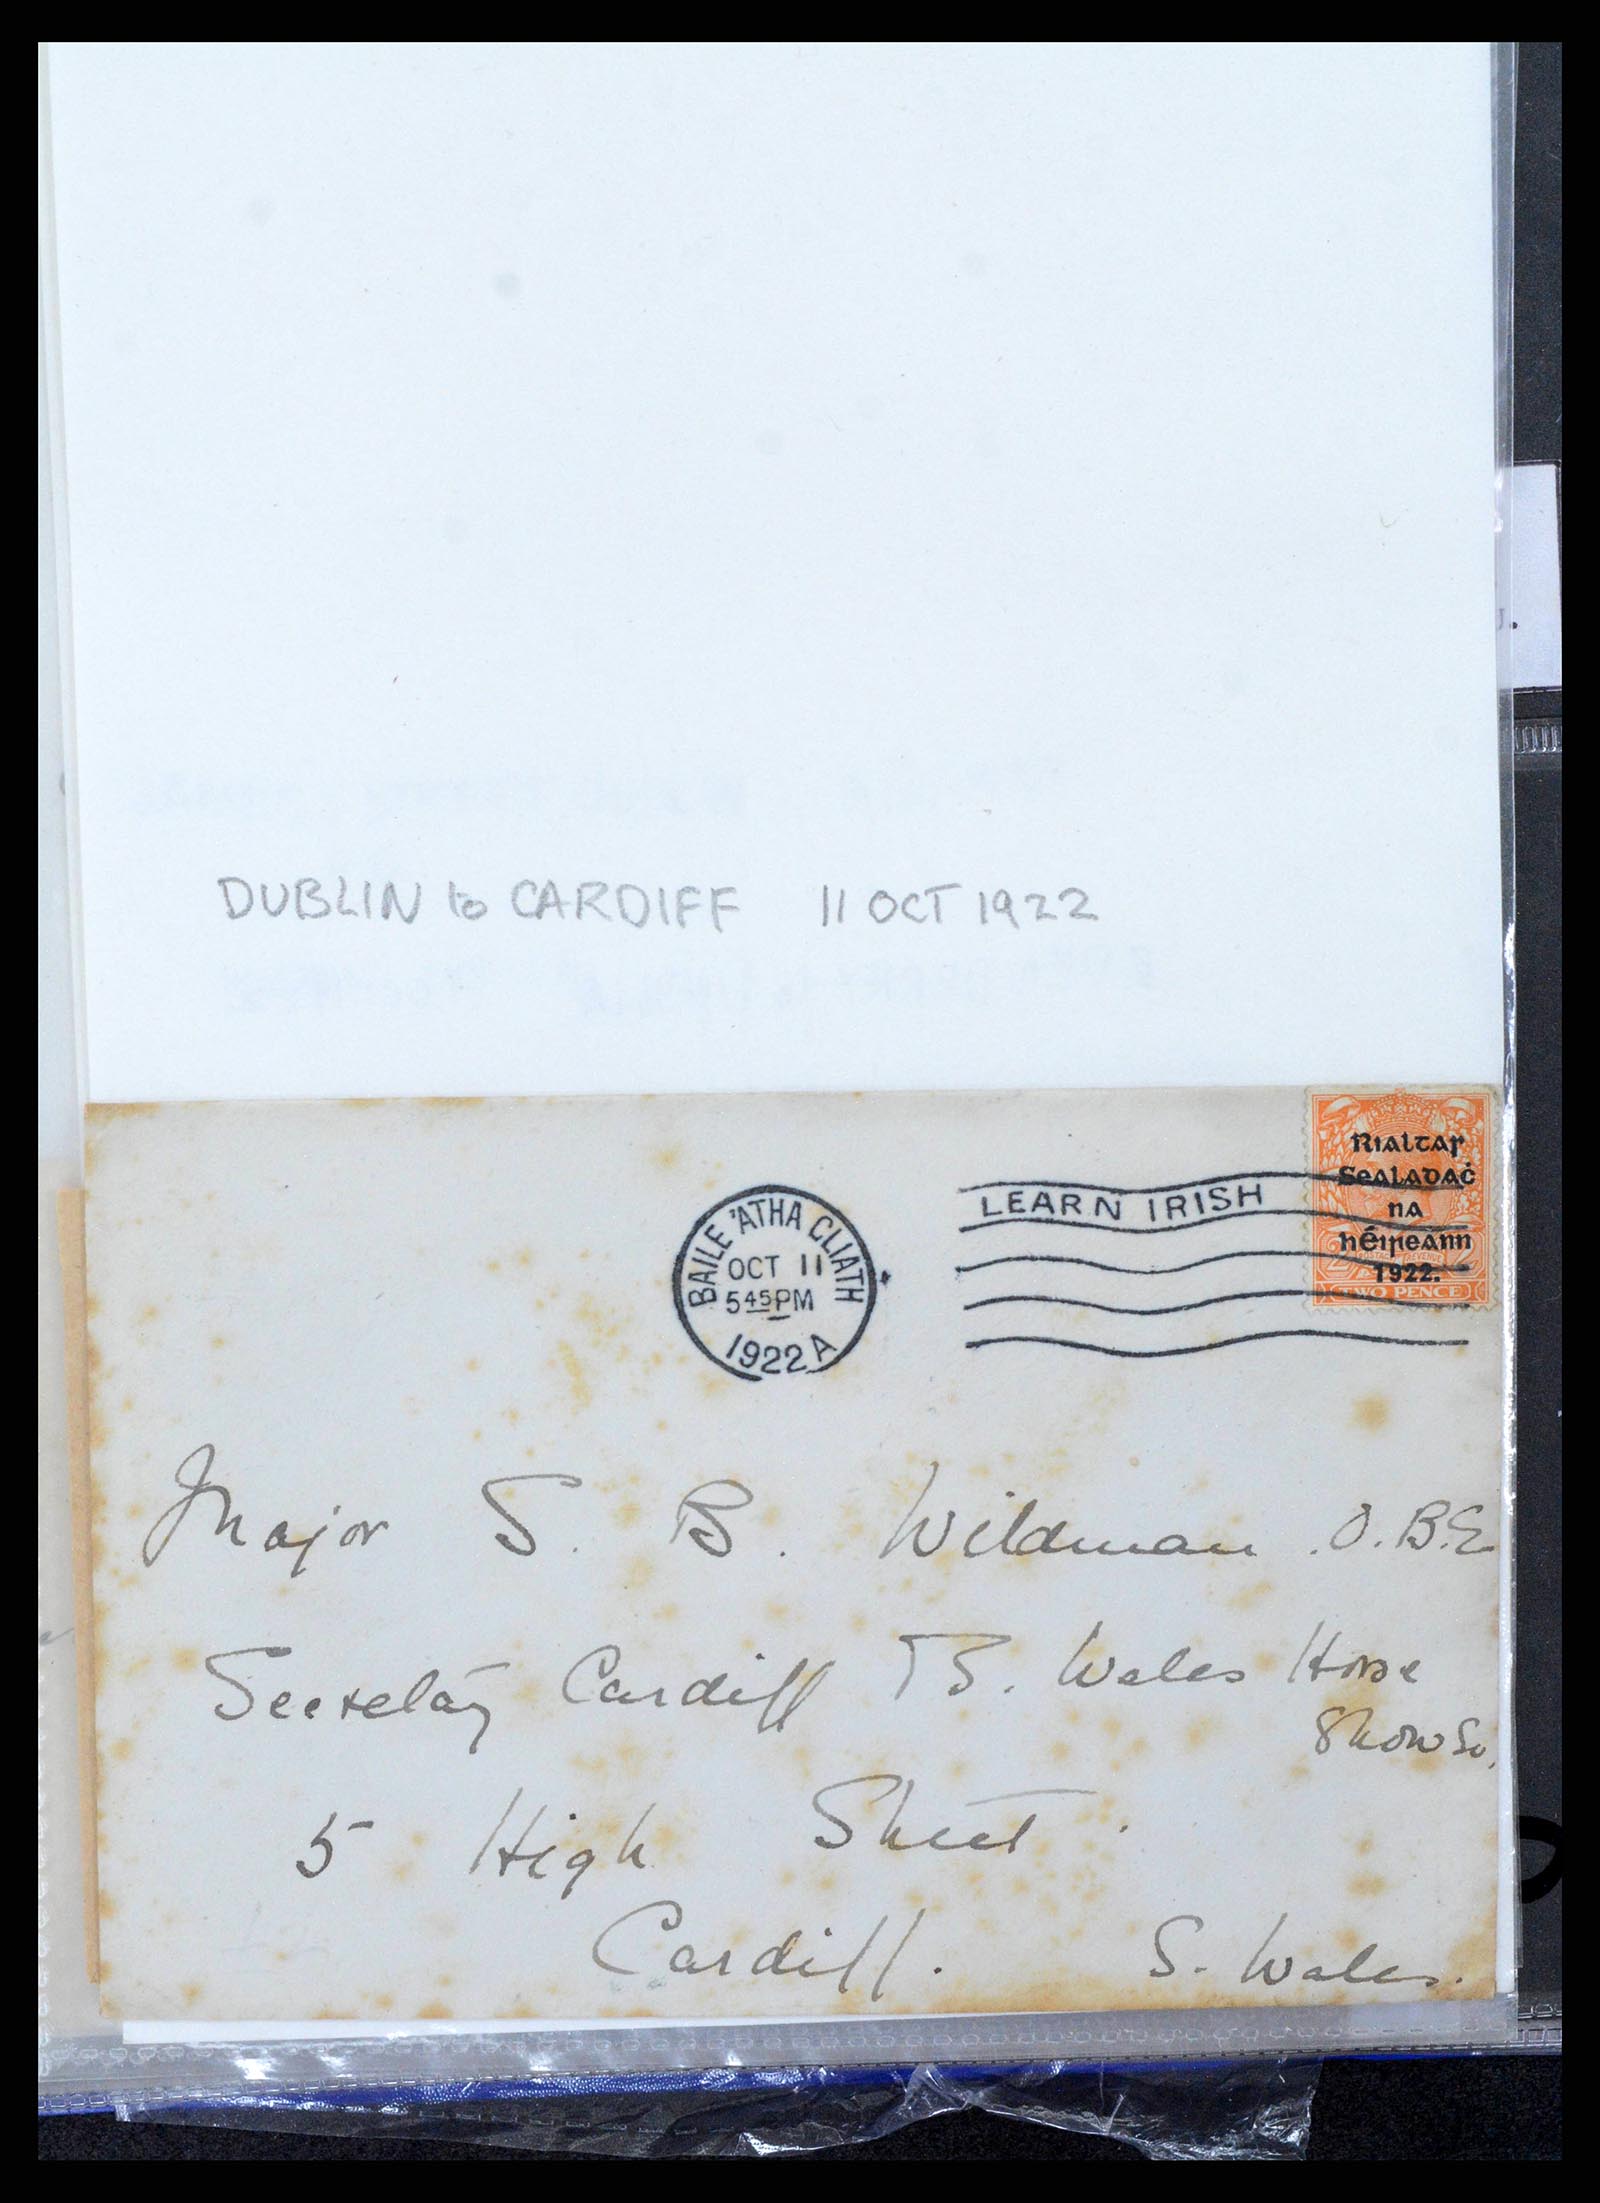 DUBLIN to CARDIFF 11 OCT 1922
BAILE 'ATHA CLIATH
OCT 11
5 45 PM
1922 A
LEARN IRISH
Rialtas
Sealadaċ
na
hÉireann
1922.
TWO PENCE
Major S. B. Wildman O.B.E
Secretary Cardiff & S. Wales Horse
Show So.
5 High Street.
Cardiff. S. Wales.